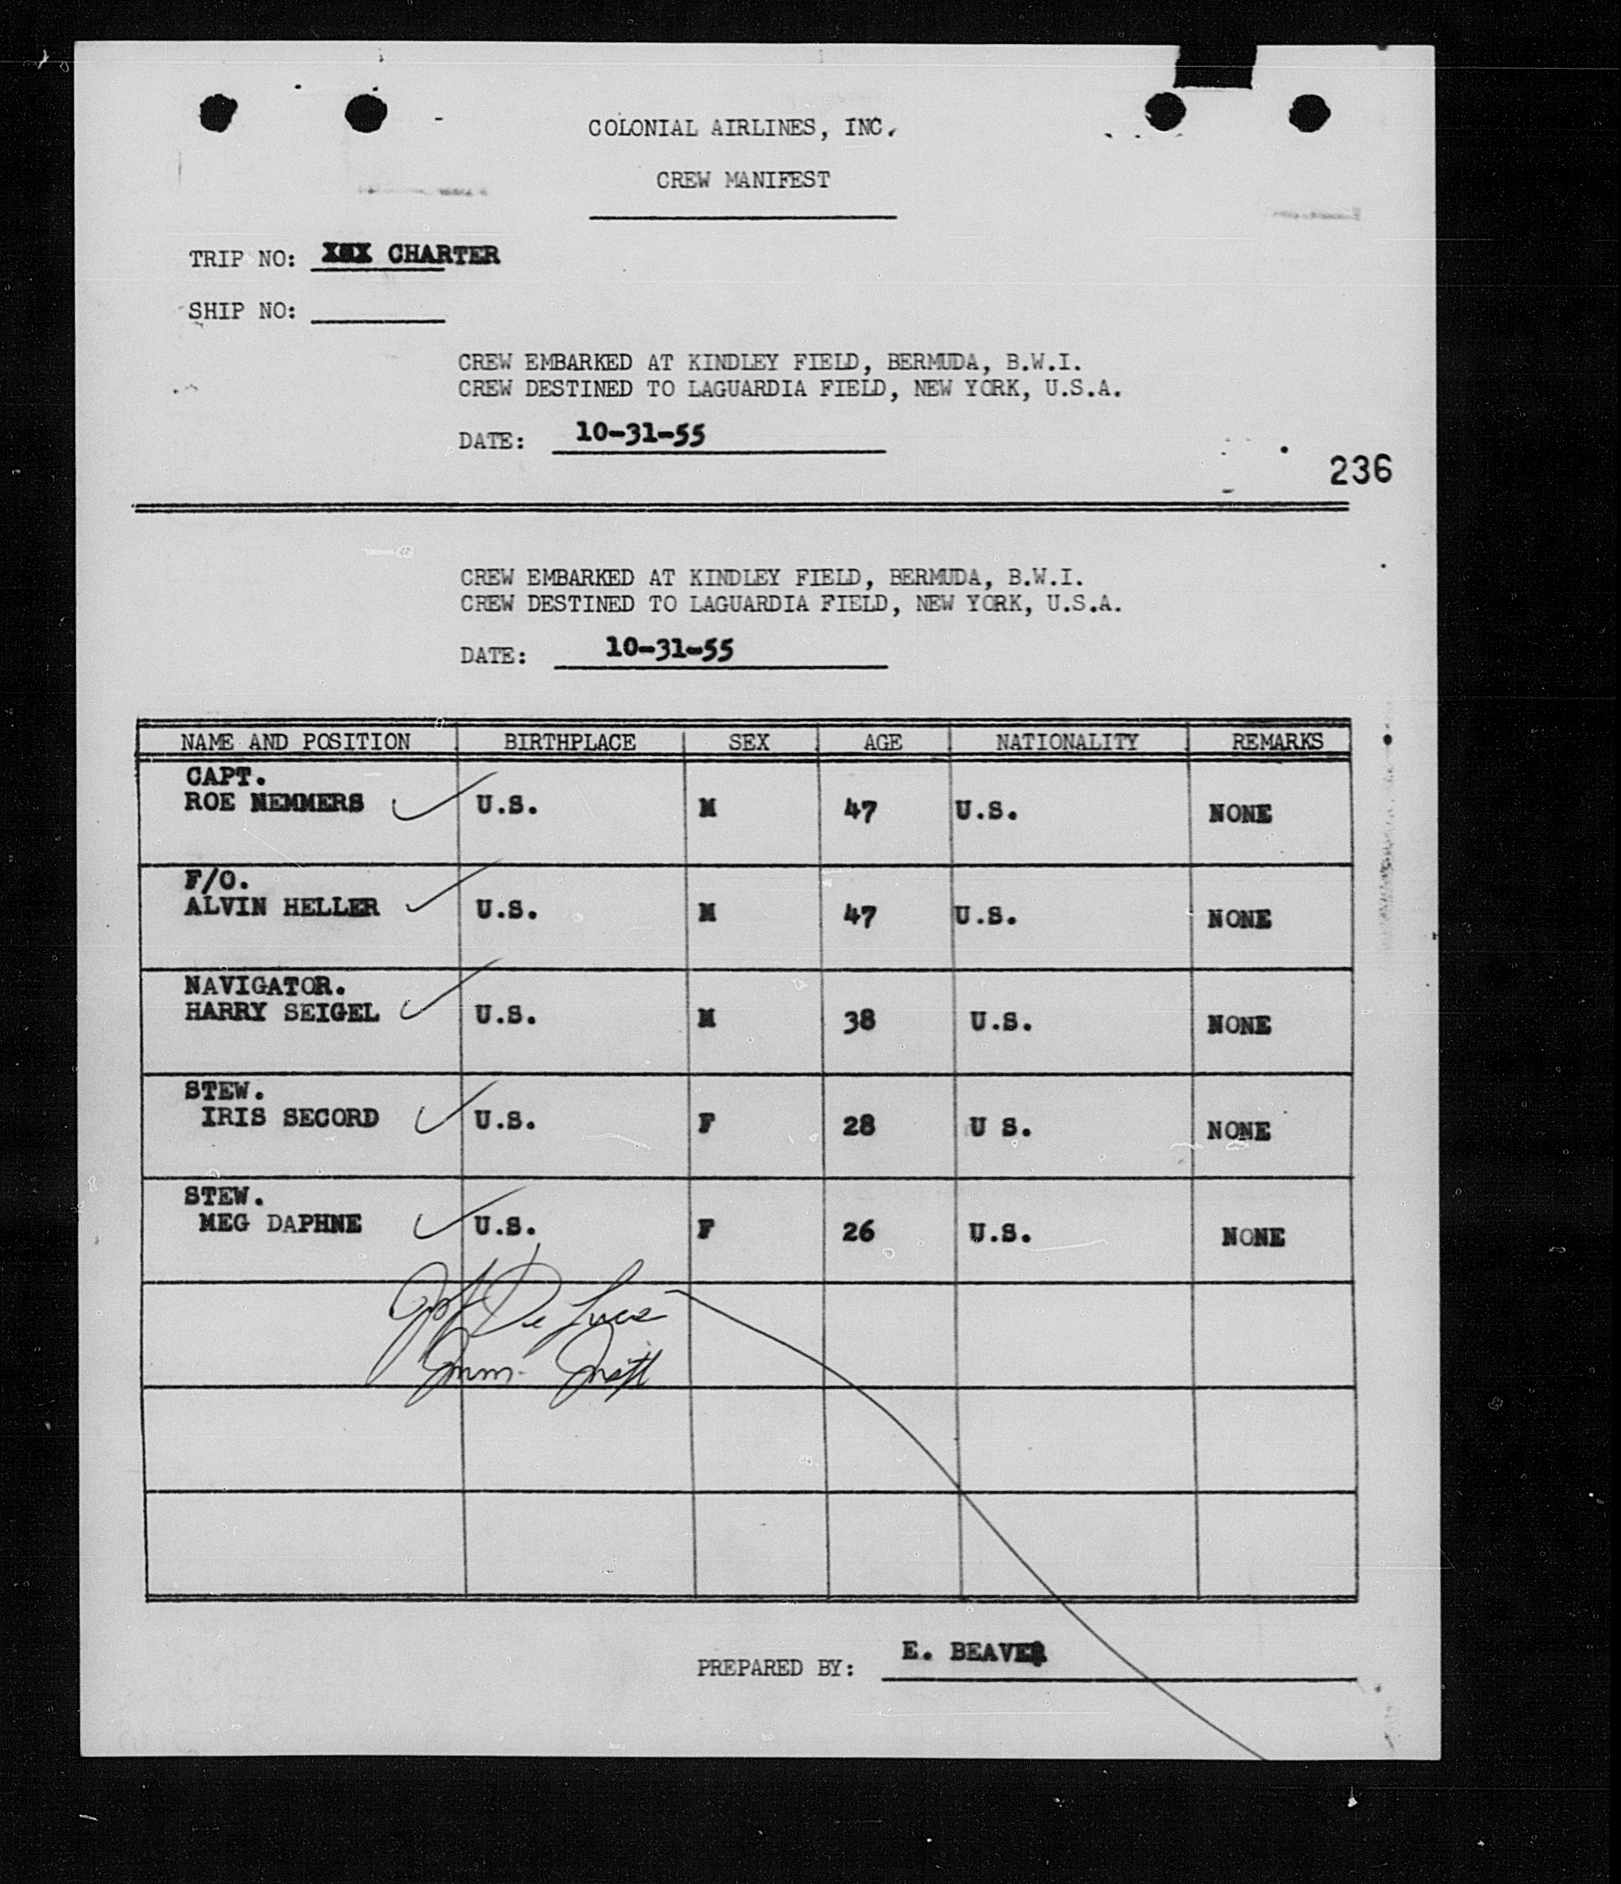 COLONIAL AIRLINES, INC.
CREW MANIFEST
TRIP NO: CHARTER
SHIP NO:
CREW EMBARKED AT KINDLEY FIELD, BERMUDA, B.W.I.
CREW DESTINED TO LAGUARDIA FIELD, NEW YORK, U.S.A.
DATE: 10-31-55
236
CREW EMBARKED AT KINDLEY FIELD, BERMUDA, B.W.I.
CREW DESTINED TO LAGUARDIA FIELD, NEW YORK, U.S.A.
DATE: 10-31-55
NAME AND POSITION BIRTHPLACE SEX AGE NATIONALITY REMARKS
CAPT.
ROE NEMMERS U.S. M 47 U.S. NONE
F/O.
ALVIN HELLER U.S. M 47 U.S. NONE
NAVIGATOR.
HARRY SEIGEL U.S. M 38 U.S. NONE
STEW.
IRIS SECORD U.S. F 28 U S. NONE
STEW.
MEG DAPHNE U.S. F 26 U.S. NONE
De Luca
Imm.
PREPARED BY: E. BEAVER